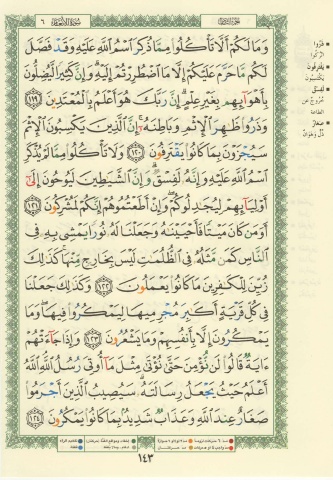 الجزء الثامن
سورة الأنعام ٦
وَمَا لَكُمْ أَلَّا تَأْكُلُوا۟ مِمَّا ذُكِرَ ٱسْمُ ٱللَّهِ عَلَيْهِ وَقَدْ فَصَّلَ
لَكُم مَّا حَرَّمَ عَلَيْكُمْ إِلَّا مَا ٱضْطُرِرْتُمْ إِلَيْهِ ۗ وَإِنَّ كَثِيرًا لَّيُضِلُّونَ
بِأَهْوَآئِهِم بِغَيْرِ عِلْمٍ ۗ إِنَّ رَبَّكَ هُوَ أَعْلَمُ بِٱلْمُعْتَدِينَ ١١٩
وَذَرُوا۟ ظَـٰهِرَ ٱلْإِثْمِ وَبَاطِنَهُۥٓ ۚ إِنَّ ٱلَّذِينَ يَكْسِبُونَ ٱلْإِثْمَ
سَيُجْزَوْنَ بِمَا كَانُوا۟ يَقْتَرِفُونَ ١٢٠ وَلَا تَأْكُلُوا۟ مِمَّا لَمْ يُذْكَرِ
ٱسْمُ ٱللَّهِ عَلَيْهِ وَإِنَّهُۥ لَفِسْقٌ ۗ وَإِنَّ ٱلشَّيَـٰطِينَ لَيُوحُونَ إِلَىٰٓ
أَوْلِيَآئِهِمْ لِيُجَـٰدِلُوكُمْ ۖ وَإِنْ أَطَعْتُمُوهُمْ إِنَّكُمْ لَمُشْرِكُونَ ١٢١
أَوَمَن كَانَ مَيْتًا فَأَحْيَيْنَـٰهُ وَجَعَلْنَا لَهُۥ نُورًا يَمْشِى بِهِۦ فِى
ٱلنَّاسِ كَمَن مَّثَلُهُۥ فِى ٱلظُّلُمَـٰتِ لَيْسَ بِخَارِجٍ مِّنْهَا ۚ كَذَٰلِكَ
زُيِّنَ لِلْكَـٰفِرِينَ مَا كَانُوا۟ يَعْمَلُونَ ١٢٢ وَكَذَٰلِكَ جَعَلْنَا
فِى كُلِّ قَرْيَةٍ أَكَـٰبِرَ مُجْرِمِيهَا لِيَمْكُرُوا۟ فِيهَا ۖ وَمَا
يَمْكُرُونَ إِلَّا بِأَنفُسِهِمْ وَمَا يَشْعُرُونَ ١٢٣ وَإِذَا جَآءَتْهُمْ
ءَايَةٌ قَالُوا۟ لَن نُّؤْمِنَ حَتَّىٰ نُؤْتَىٰ مِثْلَ مَآ أُوتِىَ رُسُلُ ٱللَّهِ ۘ ٱللَّهُ
أَعْلَمُ حَيْثُ يَجْعَلُ رِسَالَتَهُۥ ۗ سَيُصِيبُ ٱلَّذِينَ أَجْرَمُوا۟
صَغَارٌ عِندَ ٱللَّهِ وَعَذَابٌ شَدِيدٌۢ بِمَا كَانُوا۟ يَمْكُرُونَ ١٢٤
ذروا
اتركوا
يقترفون
يكتسبون
لفسق
خروج عن
الطاعة
صغار
ذل وهوان
١٤٣